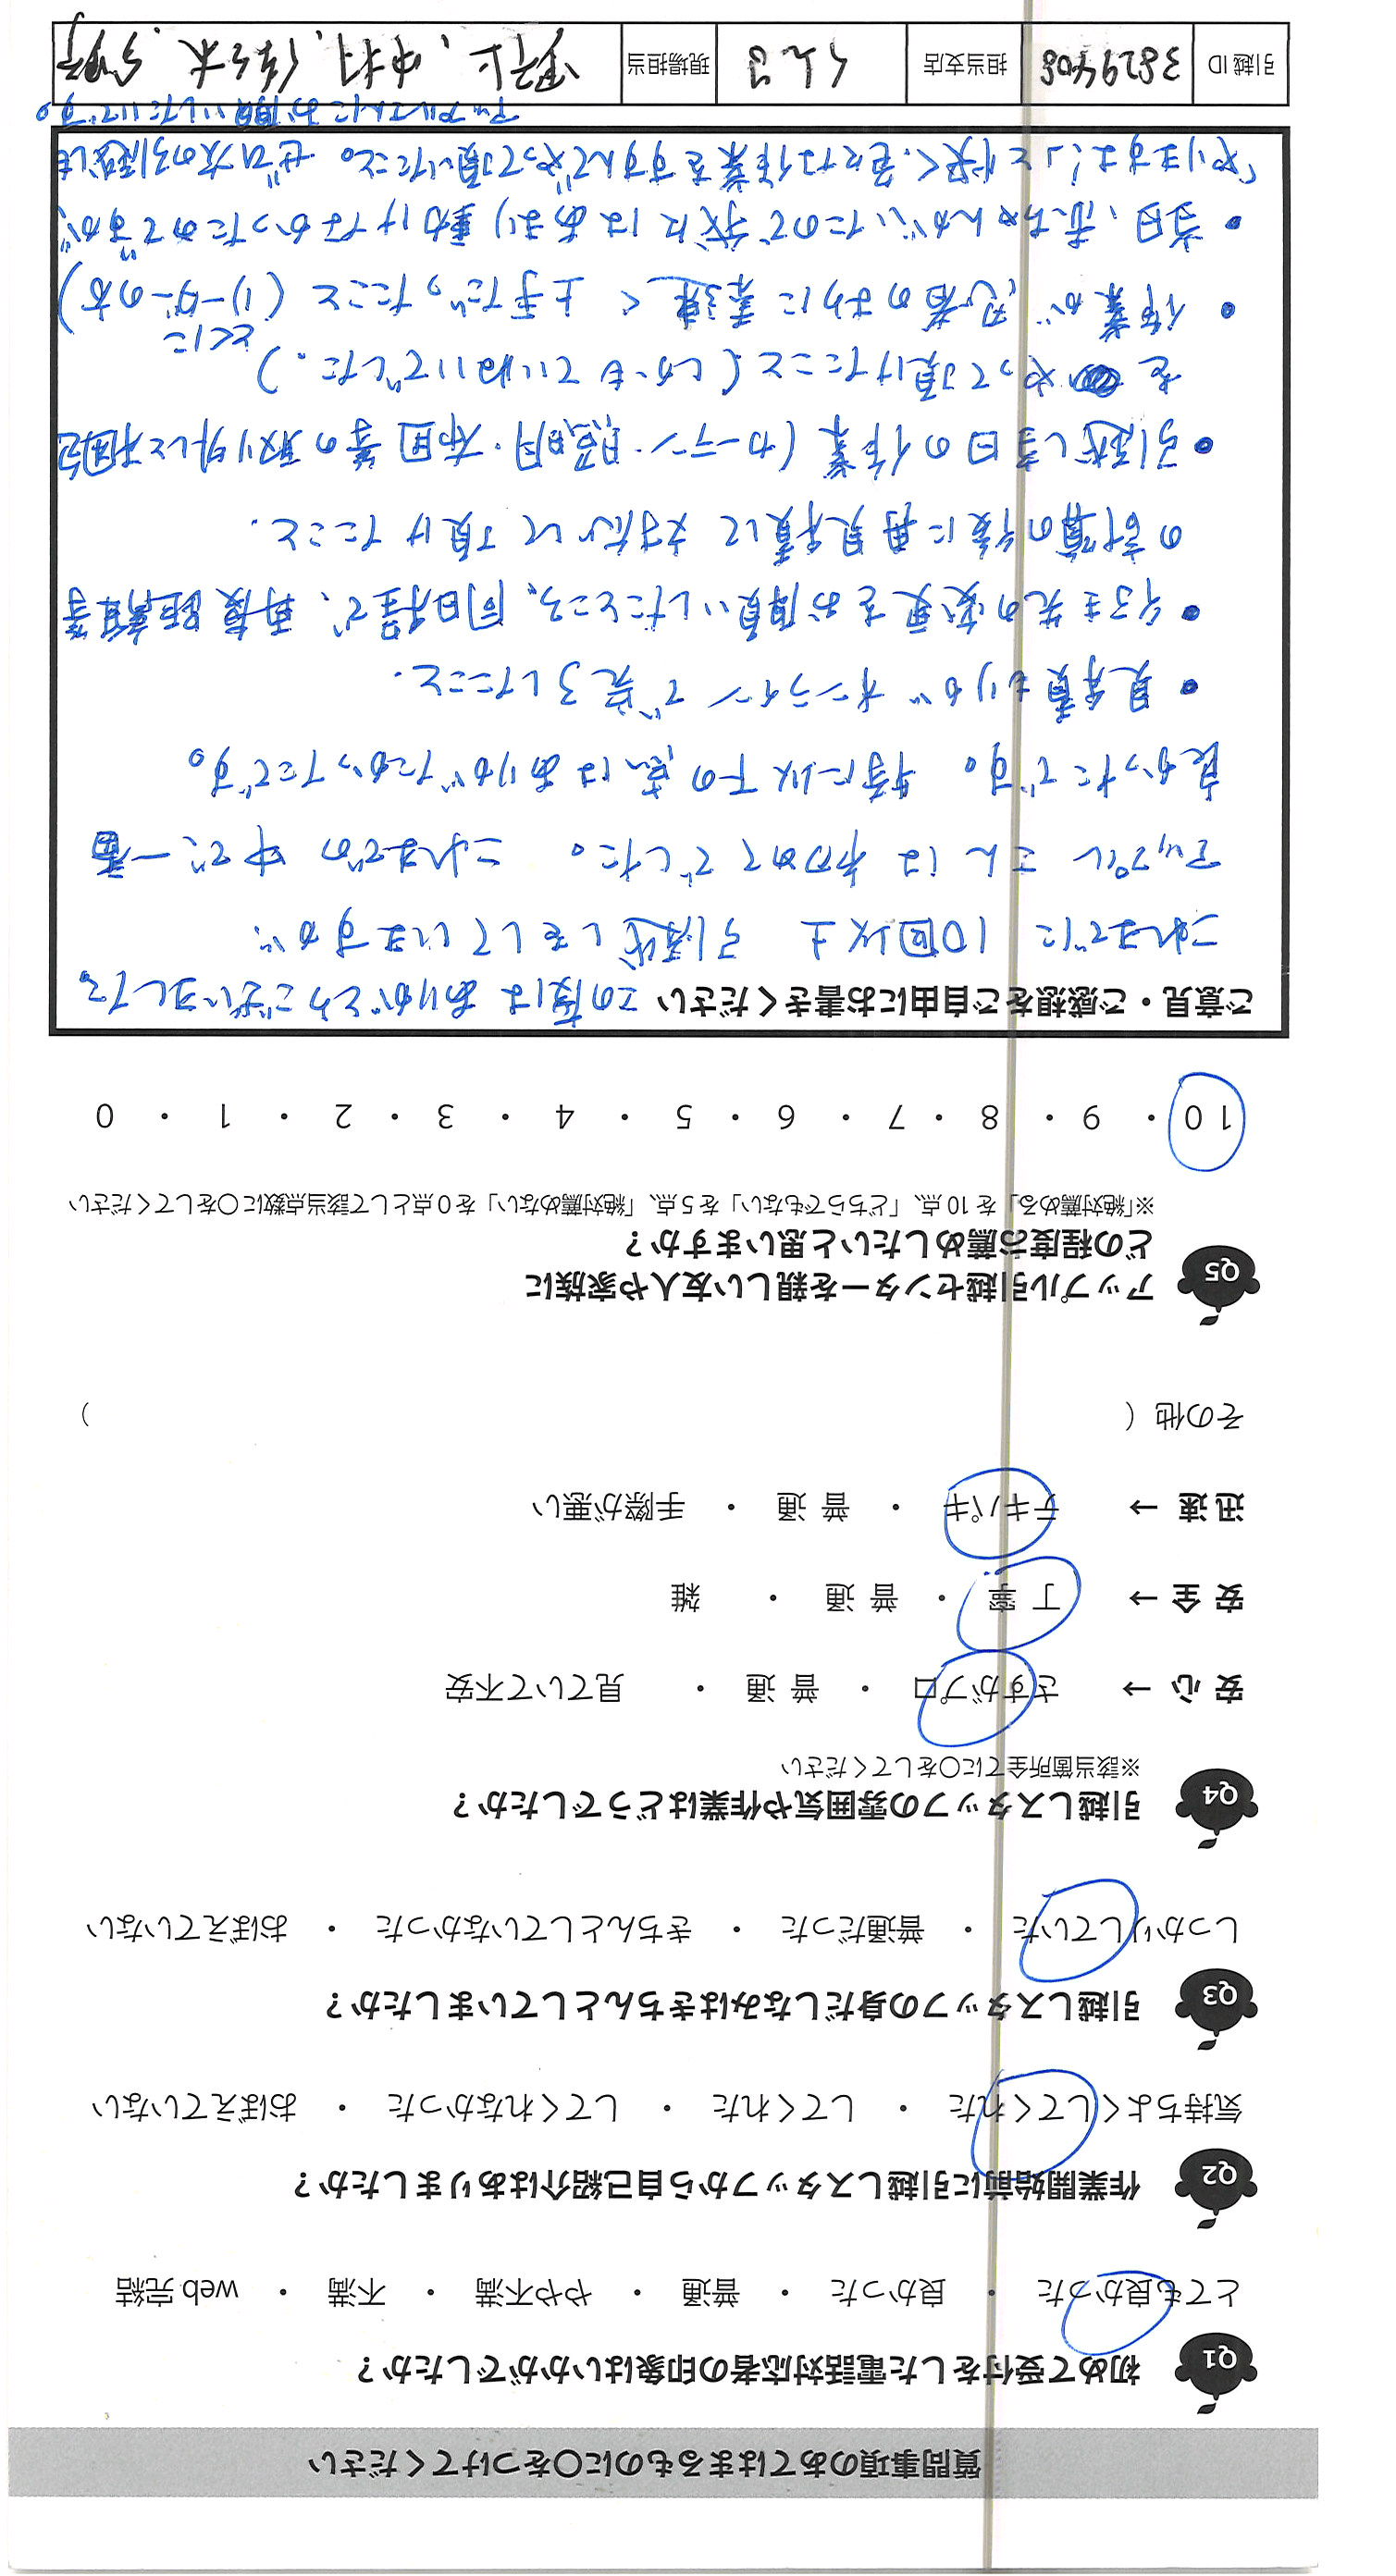 質問事項のあてはまるものに〇をつけてください
Q1 初めて受付をした電話対応者の印象はいかがでしたか？
とても良かった ・ 良かった ・ 普通 ・ やや不満 ・ 不満 ・ web 完結
Q2 作業開始前に引越しスタッフから自己紹介はありましたか？
気持ちよくしてくれた ・ してくれた ・ してくれなかった ・ おぼえていない
Q3 引越しスタッフの身だしなみはきちんとしていましたか？
しっかりしていた ・ 普通だった ・ きちんとしていなかった ・ おぼえていない
Q4 引越しスタッフの雰囲気や作業はどうでしたか？
※該当箇所全てに〇をしてください
安 心 → さすがプロ ・ 普 通 ・ 見ていて不安
安 全 → 丁 寧 ・ 普 通 ・ 雑
迅 速 → テキパキ ・ 普 通 ・ 手際が悪い
その他（ ）
Q5 アップル引越センターを親しい友人や家族に
どの程度お薦めしたいと思いますか？
※「絶対薦める」を 10 点、「どちらでもない」を 5 点、「絶対薦めない」を 0 点として該当点数に〇をしてください
10 ・ 9 ・ 8 ・ 7 ・ 6 ・ 5 ・ 4 ・ 3 ・ 2 ・ 1 ・ 0
ご意見・ご感想をご自由にお書きください この度はありがとうございました。
これまでに 10回以上 引越しをしていますが、
アップルさんは初めてでした。これまでの中で、一番
良かったです。特に以下の点はありがたかったです。
・見積もりがオンラインで完了したこと.
・行き先の変更をお願いしたところ、同日程で、再度距離等
の計算の後に再見積して対応して頂けたこと.
・引越し当日の作業（カーテン・照明・布団等の取り外しと梱包
をやって頂けたこと（しかもていねいでした.）
・作業が忍者のように素速く上手だったこと（リーダーの方）
とくに
・当日、赤ちゃんがいたので我々はあまり動けなかったのですが、
「やりますよ！」と快く、色々な作業をすすんでやって頂いたこと。ぜひ次の引越しも
アップルさんにお願いしたいです。
引越 ID 3829408 担当支店 現場担当 野上、中村、佐々木、